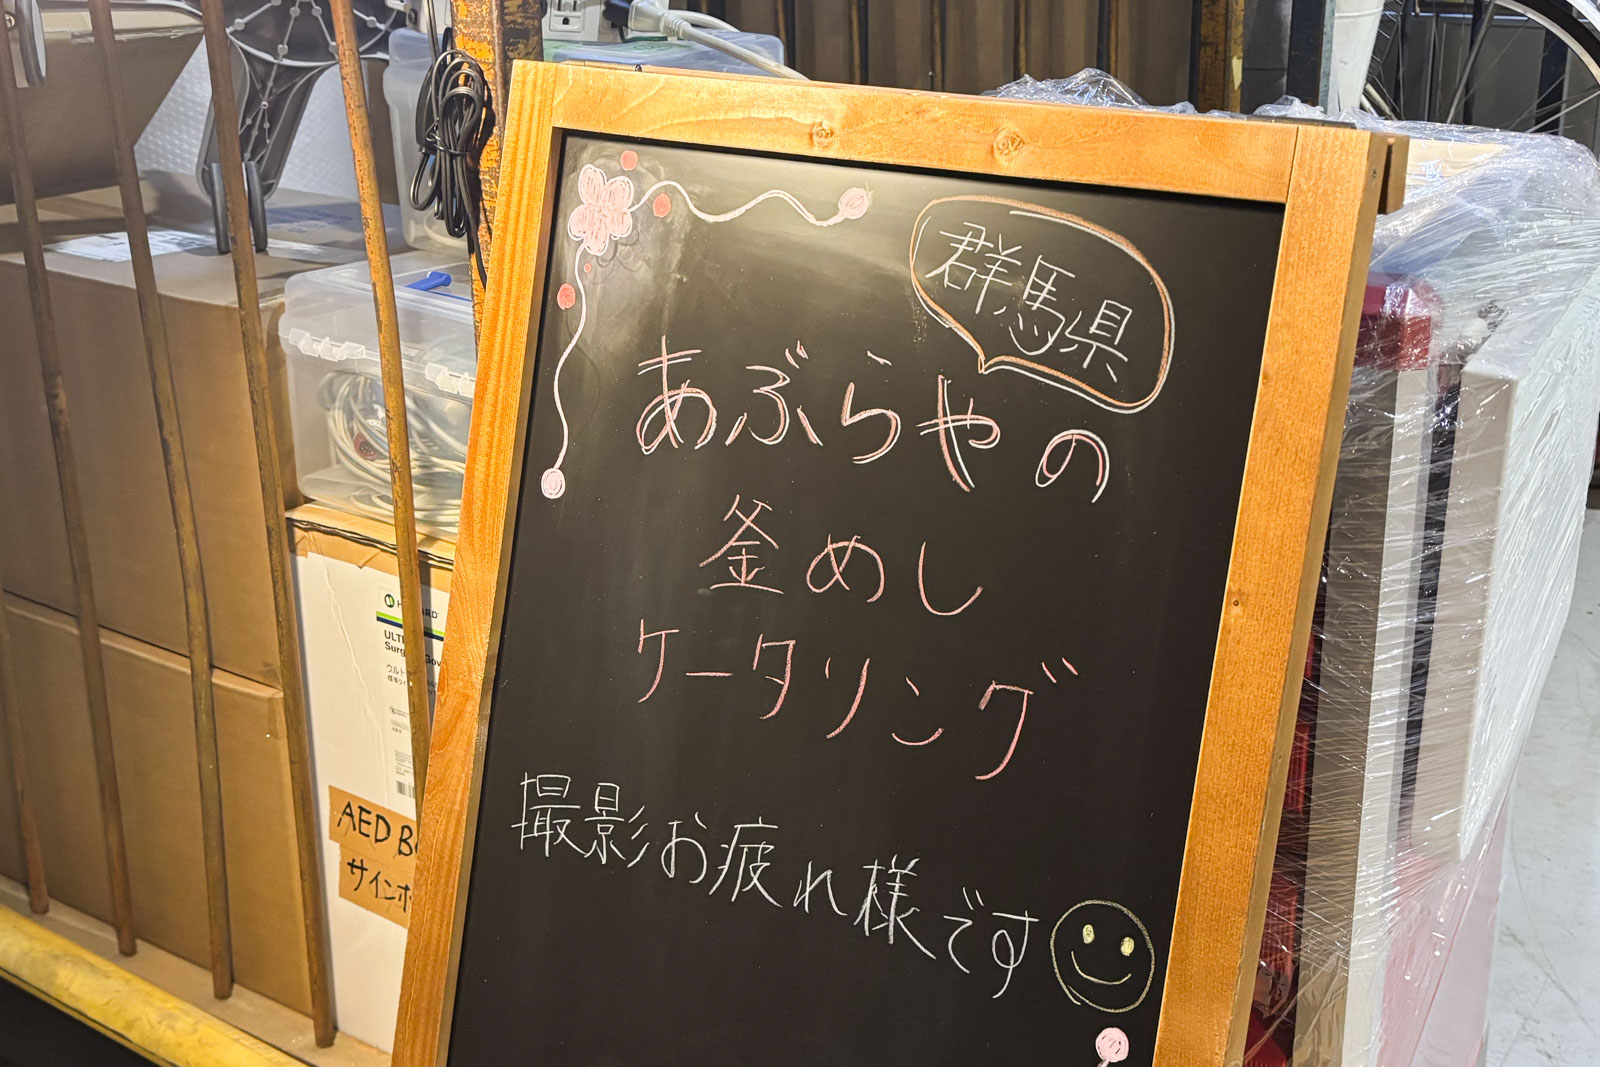 群馬県
あぶらやの
釜めし
ケータリング
撮影お疲れ様です
ULT
Surg
Gov
ウルト
AED B
サインポ